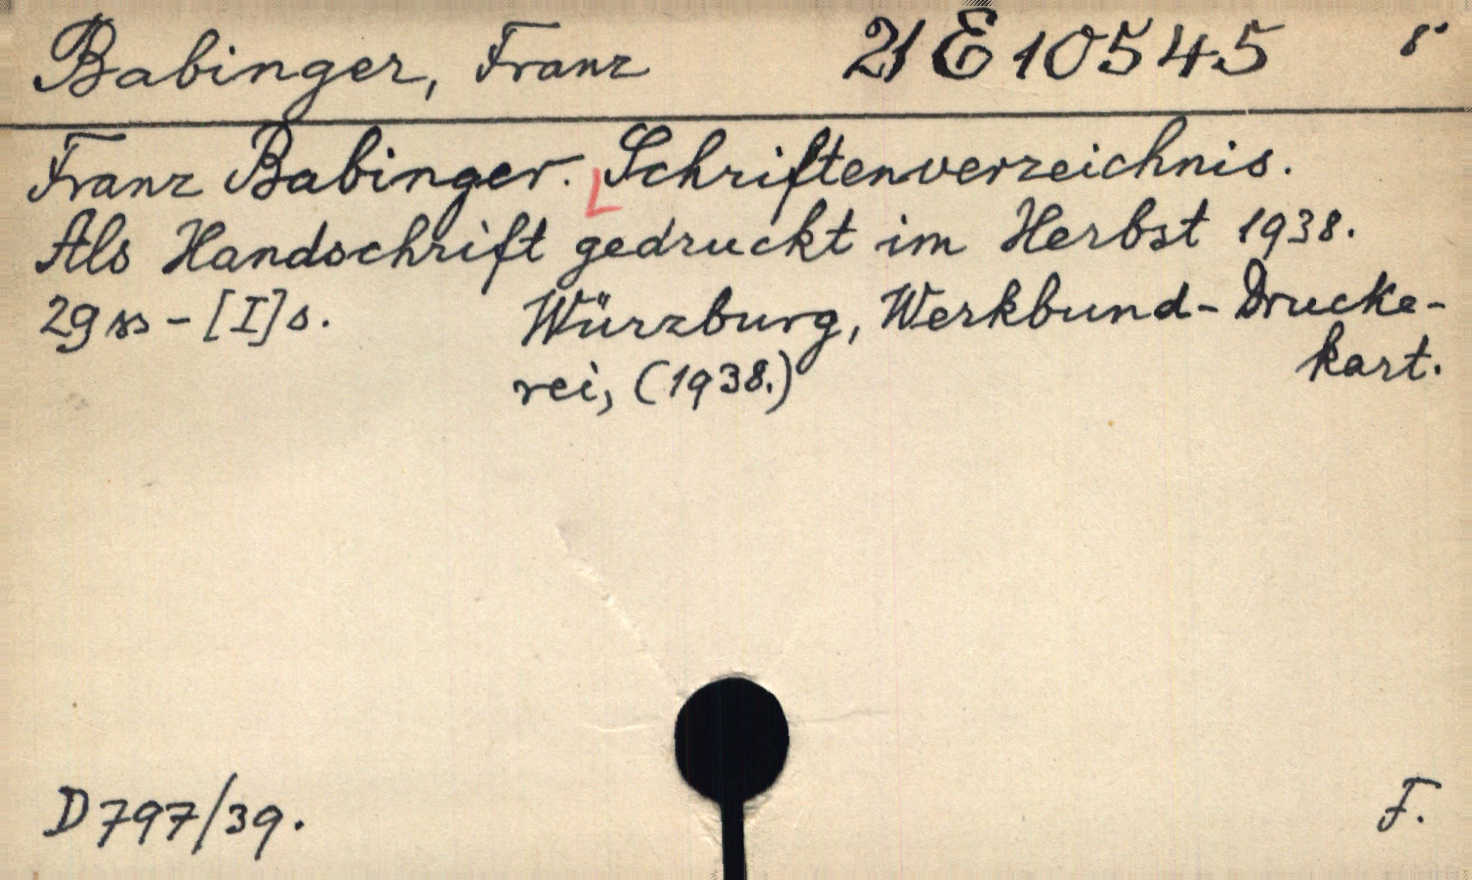 Babinger, Franz 21 E 10545 8°
Franz Babinger. Schriftenverzeichnis.
Als Handschrift gedruckt im Herbst 1938.
29 ss - [I] s. Würzburg, Werkbund-Drucke-
rei, (1938.) kart.
D 797/39. F.